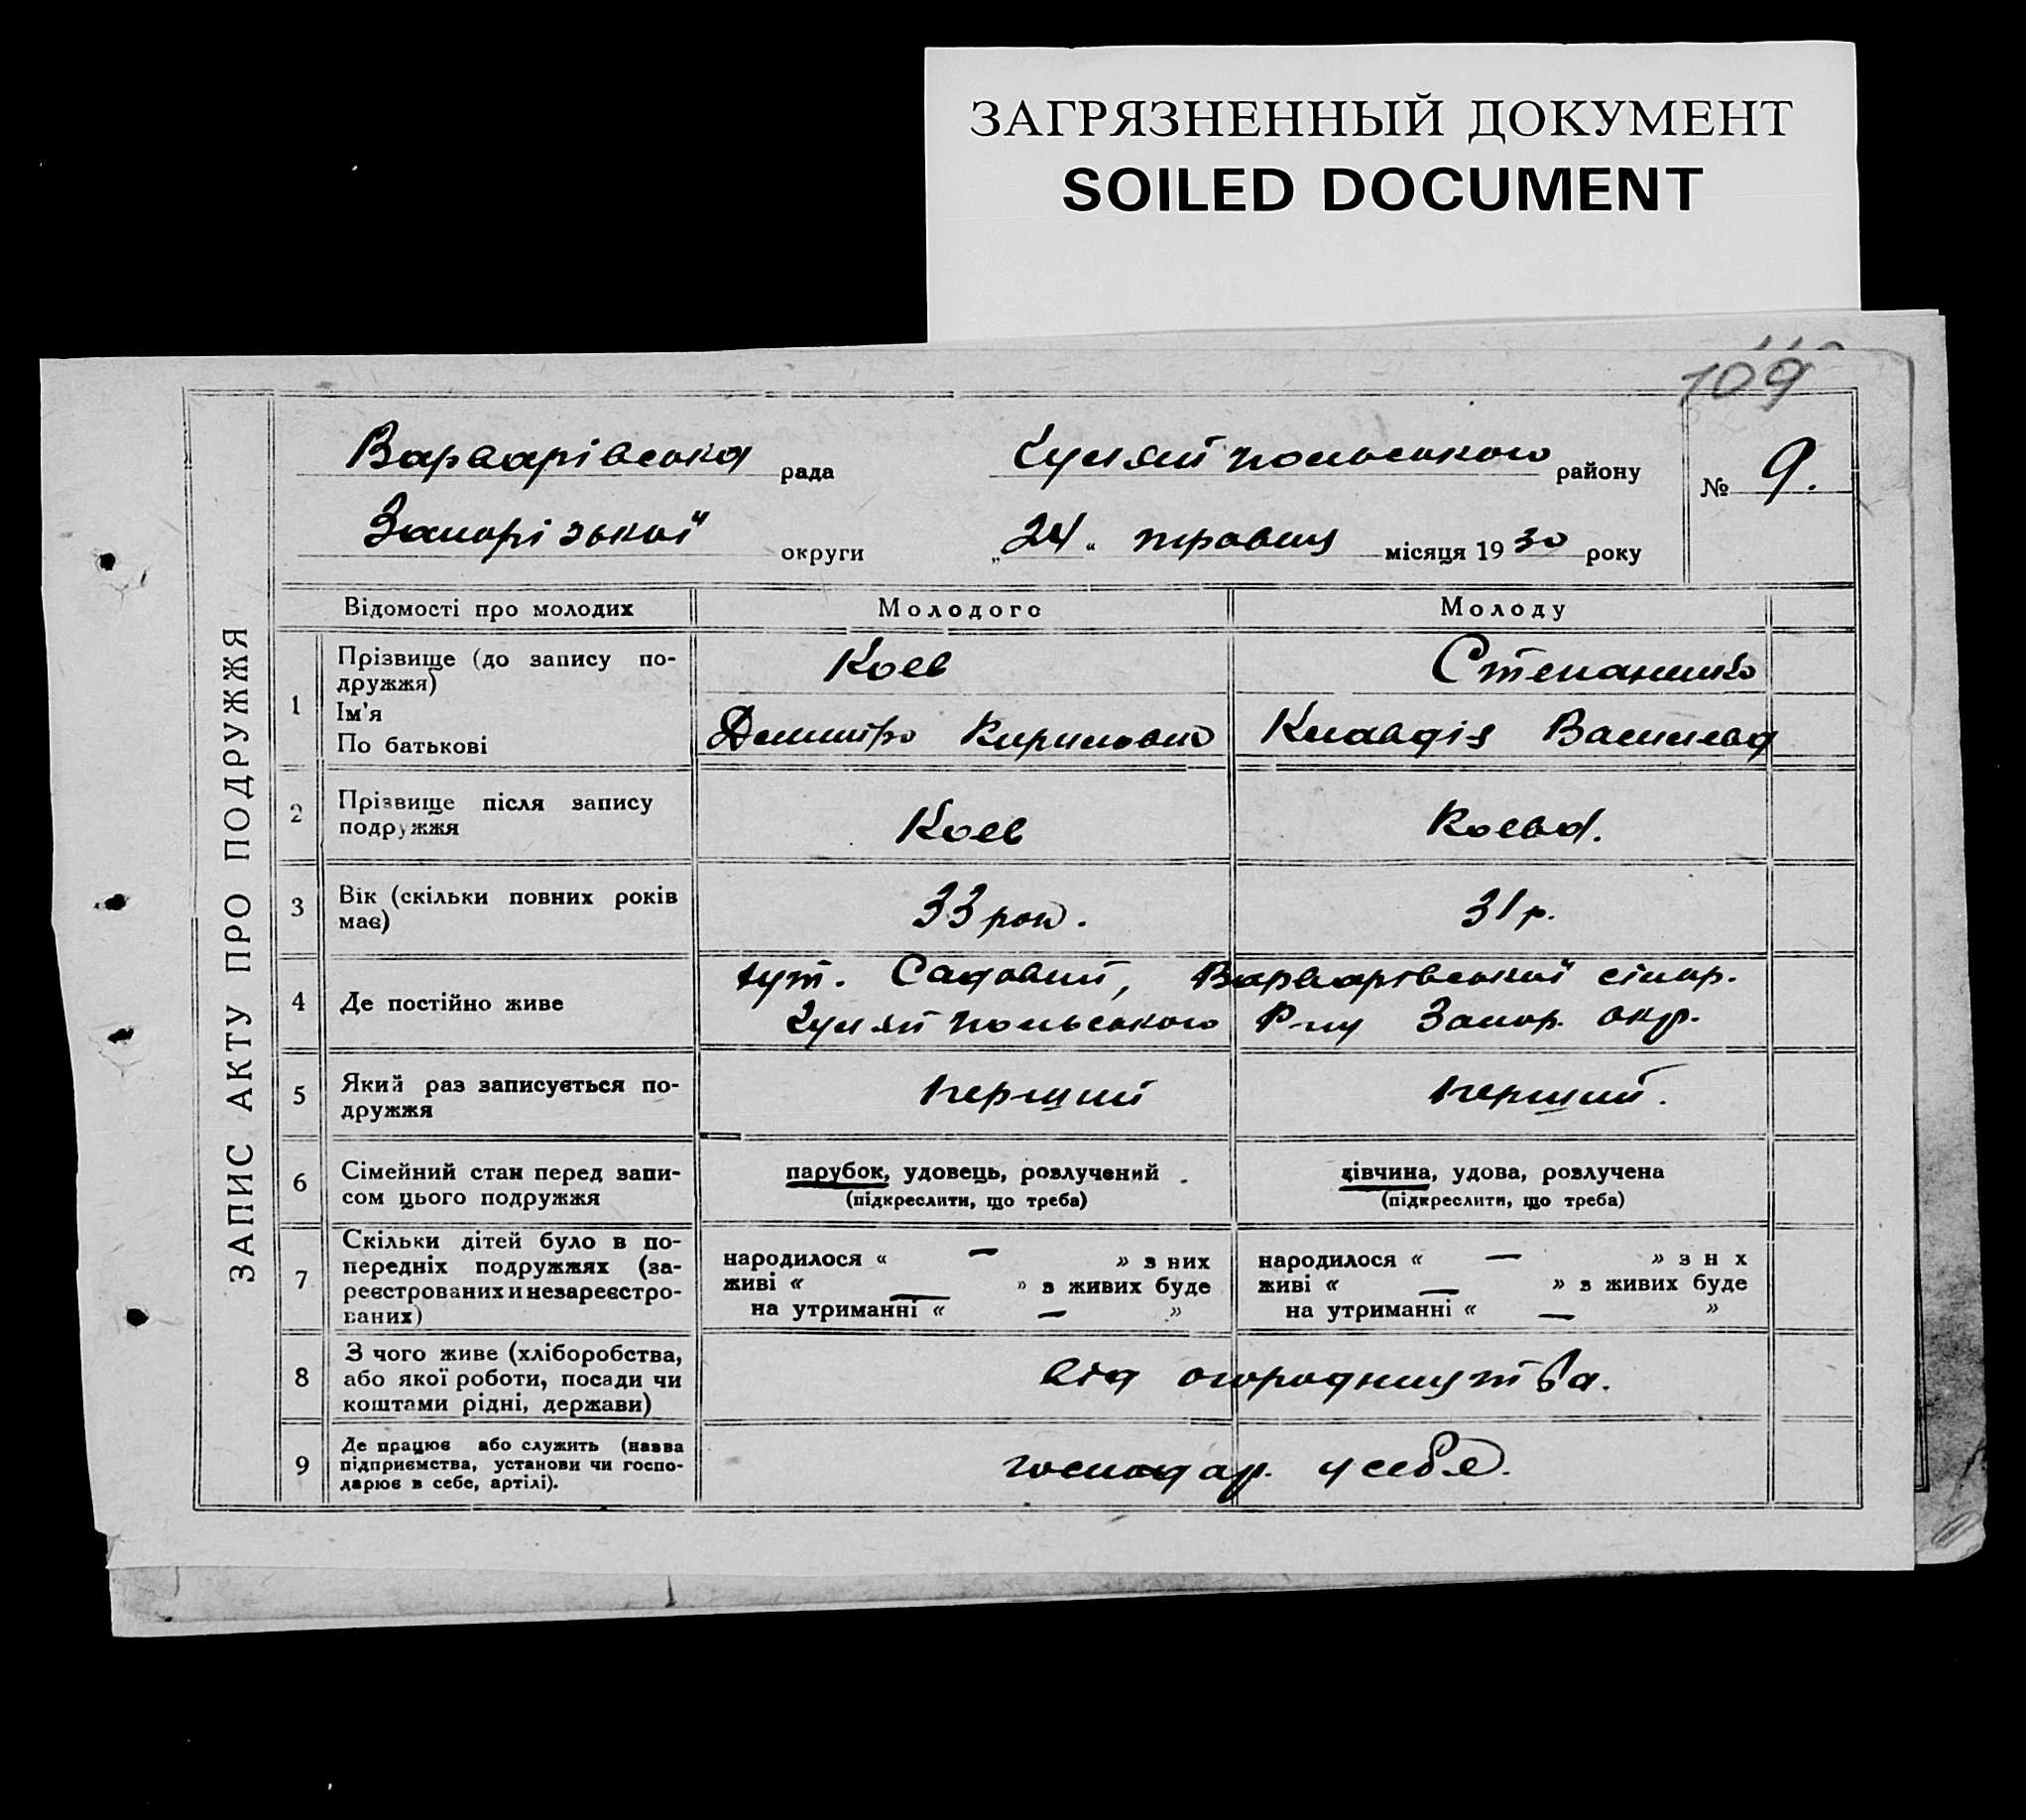 ЗАГРЯЗНЕННЫЙ ДОКУМЕНТ
SOILED DOCUMENT
109
Варварівська рада Гуляйпольського району № 9.
Запорізької округи „24“ травня місяця 1930 року
ЗАПИС АКТУ ПРО ПОДРУЖЖЯ
Відомості про молодих Молодого Молоду
1 Прізвище (до запису по-
дружжя) Коев Степаненко
Ім'я
По батькові Дмитро Кирилович Клавдія Васильвд
2 Прізвище після запису
подружжя Коев Коева.
3 Вік (скільки повних років
має) 33 рок. 31 р.
4 Де постійно живе хут. Садовий, Варварівської сільр.
Гуляйпольського Р-ну Запор. окр.
5 Який раз записується по-
дружжя перший перший.
6 Сімейний стан перед запи-
сом цього подружжя парубок, удовець, розлучений дівчина, удова, розлучена
(підкреслити, що треба) (підкреслити, що треба)
7 Скільки дітей було в по-
передніх подружжях (за-
реєстрованих и незареєстро-
ваних)
народилося « — » з них народилося « — » з н х
живі « — » з живих буде живі « — » з живих буде
на утриманні « — » на утриманні « — »
8 З чого живе (хліборобства,
або якої роботи, посади чи
коштами рідні, держави) від огородництва.
9 Де працює або служить (назва
підприємства, установи чи госпо-
дарює в себе, артілі). господар. у себе.